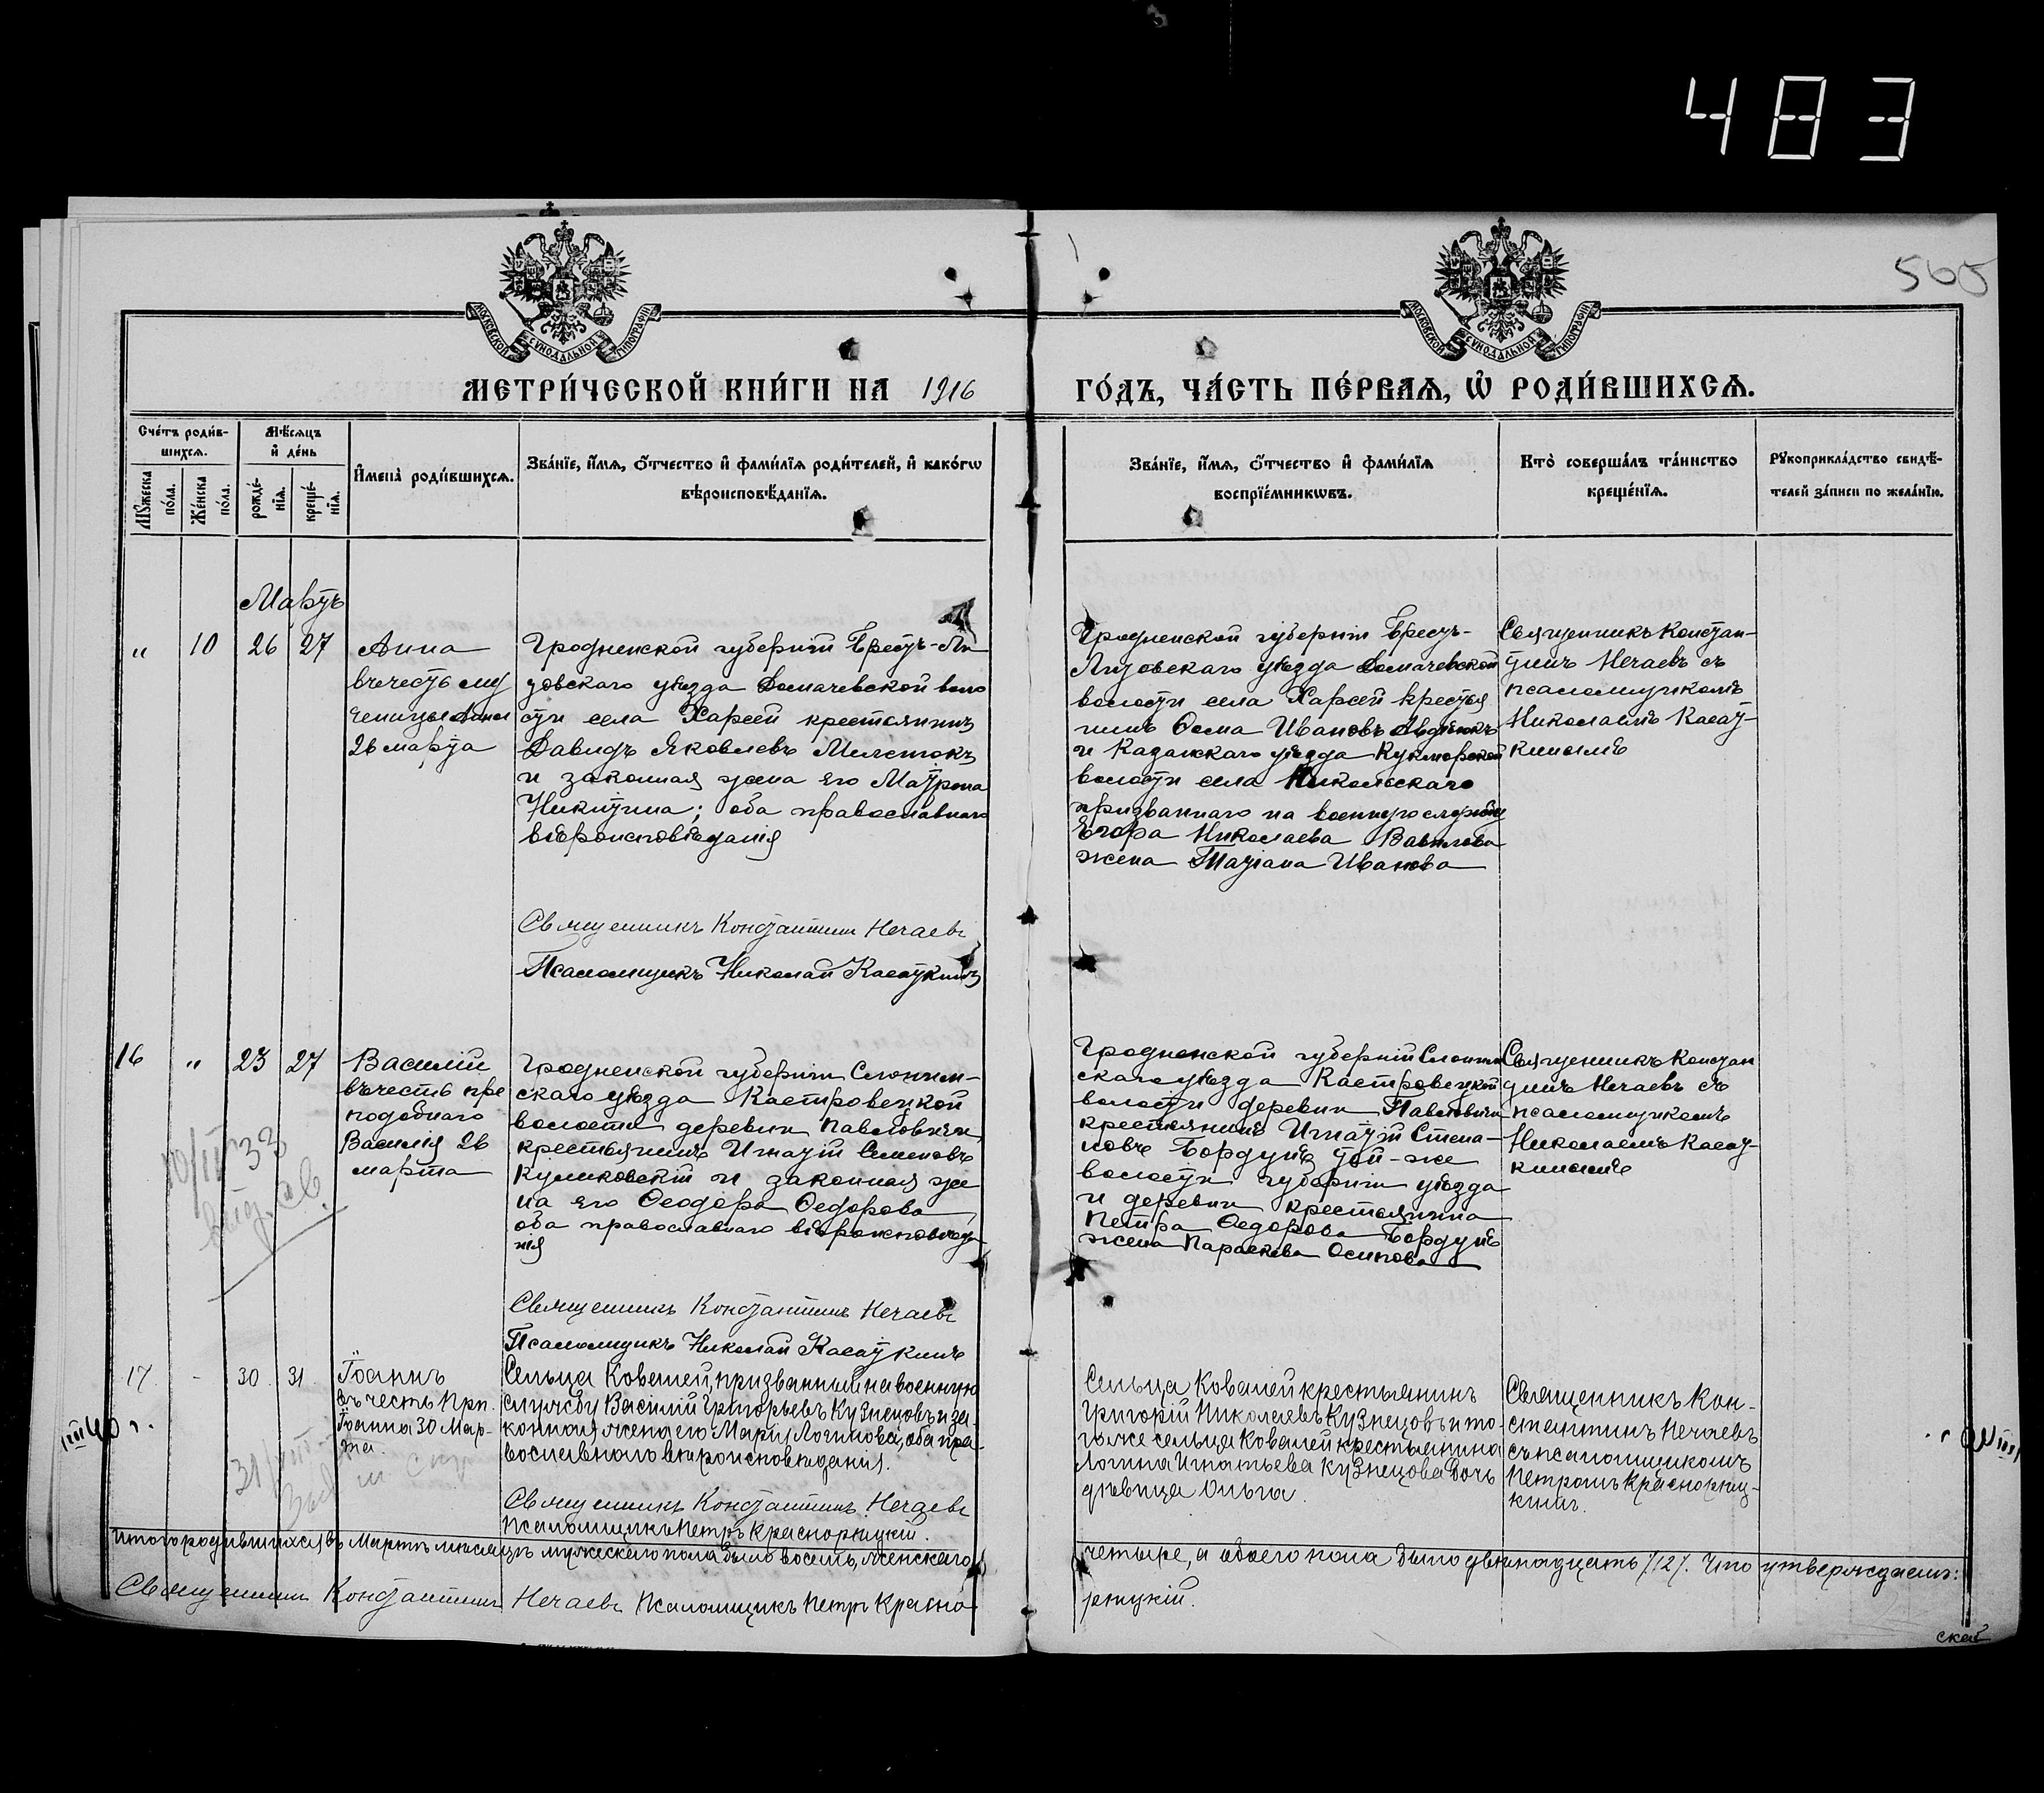 483
565
МОСКОВСКОЙ СѴНОДАЛЬНОЙ ТИПОГРАФІИ
МОСКОВСКОЙ СѴНОДАЛЬНОЙ ТИПОГРАФІИ
МЕТРИ́ЧЕСКОЙ КНИ́ГИ НА 1916 ГО́ДЪ, ЧА́СТЬ ПЕ́РВАѦ, Ѡ҆ РОДИ́ВШИХСѦ.
Сче́тъ роди́в-
шихсѧ.
Мѣ́сѧцъ
и҆ де́нь
Мꙋ́жеска
по́ла.
Же́нска
по́ла.
рожде́-
нїѧ.
креще́-
нїѧ.
И҆мена̀ роди́вшихсѧ.
Зва́нїе, и҆́мѧ, ѻ҆́тчество и҆ фами́лїѧ роди́телей, и҆ како́гѡ
вѣроисповѣ́данїѧ.
Зва́нїе, и҆́мѧ, ѻ҆́тчество и҆ фами́лїѧ
воспрїе́мникѡвъ.
Кто̀ соверша́лъ та́инство
креще́нїѧ.
Рꙋкоприкла́дство свидѣ́-
телей за́писи по жела́нїю.
Мартъ
" 10 26 27
Анна
въ честь му
ченицы Анны
26 марта
Гродненской губерніи Брестъ-Ли
товскаго уѣзда Домачевской воло
сти села Харсей крестьянинъ
Давидъ Яковлевъ Милстокъ
и законная жена его Матрона
Никитина; оба православнаго
вѣроисповѣданія
Священникъ Константинъ Нечаевъ
Псаломщикъ Николай Касаткинъ
Гродненской губерніи Брестъ-
Литовскаго уѣзда Домачевской
волости села Харсей крестья
нинъ Ѳома Ивановъ
и Казанскаго уѣзда Кукморской
волости села Никольскаго
призваннаго на военную службу
Егора Николаева Вавилова
жена Татіана Иванова
Священникъ Констан-
тинъ Нечаевъ съ
псаломщикомъ
Николаемъ Касат-
кинымъ
16 " 23 27
Василій
въ честь пре
подобнаго
Василія 26
марта
Гродненской губерніи Слоним-
скаго уѣзда Костровецкой
волости деревни Павловичи
крестьянинъ Игнатій Семеновъ
Куликовскій и законная же
на его Ѳеодора Ѳедорова
оба православнаго вѣроисповѣда
нія
Священникъ Константинъ Нечаевъ
Псаломщикъ Николай Касаткинъ
Гродненской губерніи Слоним
скаго уѣзда Костровецкой
волости деревни Павловичи
крестьянинъ Игнатій Степа-
новъ Бордунъ той-же
волости губерніи уѣзда
и деревни крестьянина
Петра Ѳедорова Бордунъ
жена Параскева Осипова
Священникъ Констан
тинъ Нечаевъ съ
псаломщикомъ
Николаемъ Касат-
кинымъ
17 - 30 31
Іоаннъ
въ честь Прп.
Іоанна 30 Мар-
та.
Сельца Ковалей, призванный на военную
службу Василій Григорьевъ Кузнецовъ и за-
конная жена его Марія Логинова, оба пра-
вославнаго вѣроисповѣданія.
Священникъ Константинъ Нечаевъ
Псаломщикъ Петръ Красноряцкій.
Сельца Ковалей крестьянинъ
Григорій Николаевъ Кузнецовъ и то-
гоже сельца Ковалей крестьянина
Логина Игнатьева Кузнецова дочь
дѣвица Ольга.
Священникъ Кон-
стантинъ Нечаевъ
съ псаломщикомъ
Петромъ Красноряц-
кимъ.
Итого родившихся въ Мартѣ мѣсяцѣ мужескаго пола было восемь, женскаго четыре, а обоего пола было двѣнадцать /12/. Что утверждаемъ:
Священникъ Константинъ Нечаевъ Псаломщикъ Петръ Красно-
ряцкій.